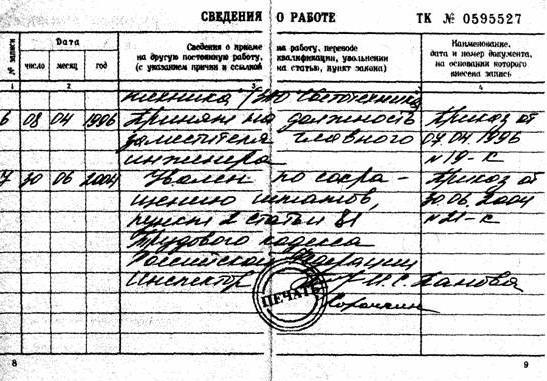 СВЕДЕНИЯ О РАБОТЕ ТК № 0595527
№ записи
Дата
Сведения о приеме на работу, переводе
на другую постоянную работу, квалификации, увольнении
(с указанием причин и ссылкой на статью, пункт закона)
Наименование,
дата и номер документа,
на основании которого
внесена запись
число месяц год
1 2 3 4
6 08 04 1996 Принят на должность Приказ от
заместителя главного 07.04.1996
инженера N19-к
7 30 06 2004 Уволен по сокра- Приказ от
щению штатов, 30.06.2004
пункт 2 статьи 81 N21-к
Трудового кодекса
Российской Федерации
Инспектор И.С. Панова
ПЕЧАТЬ
8 9